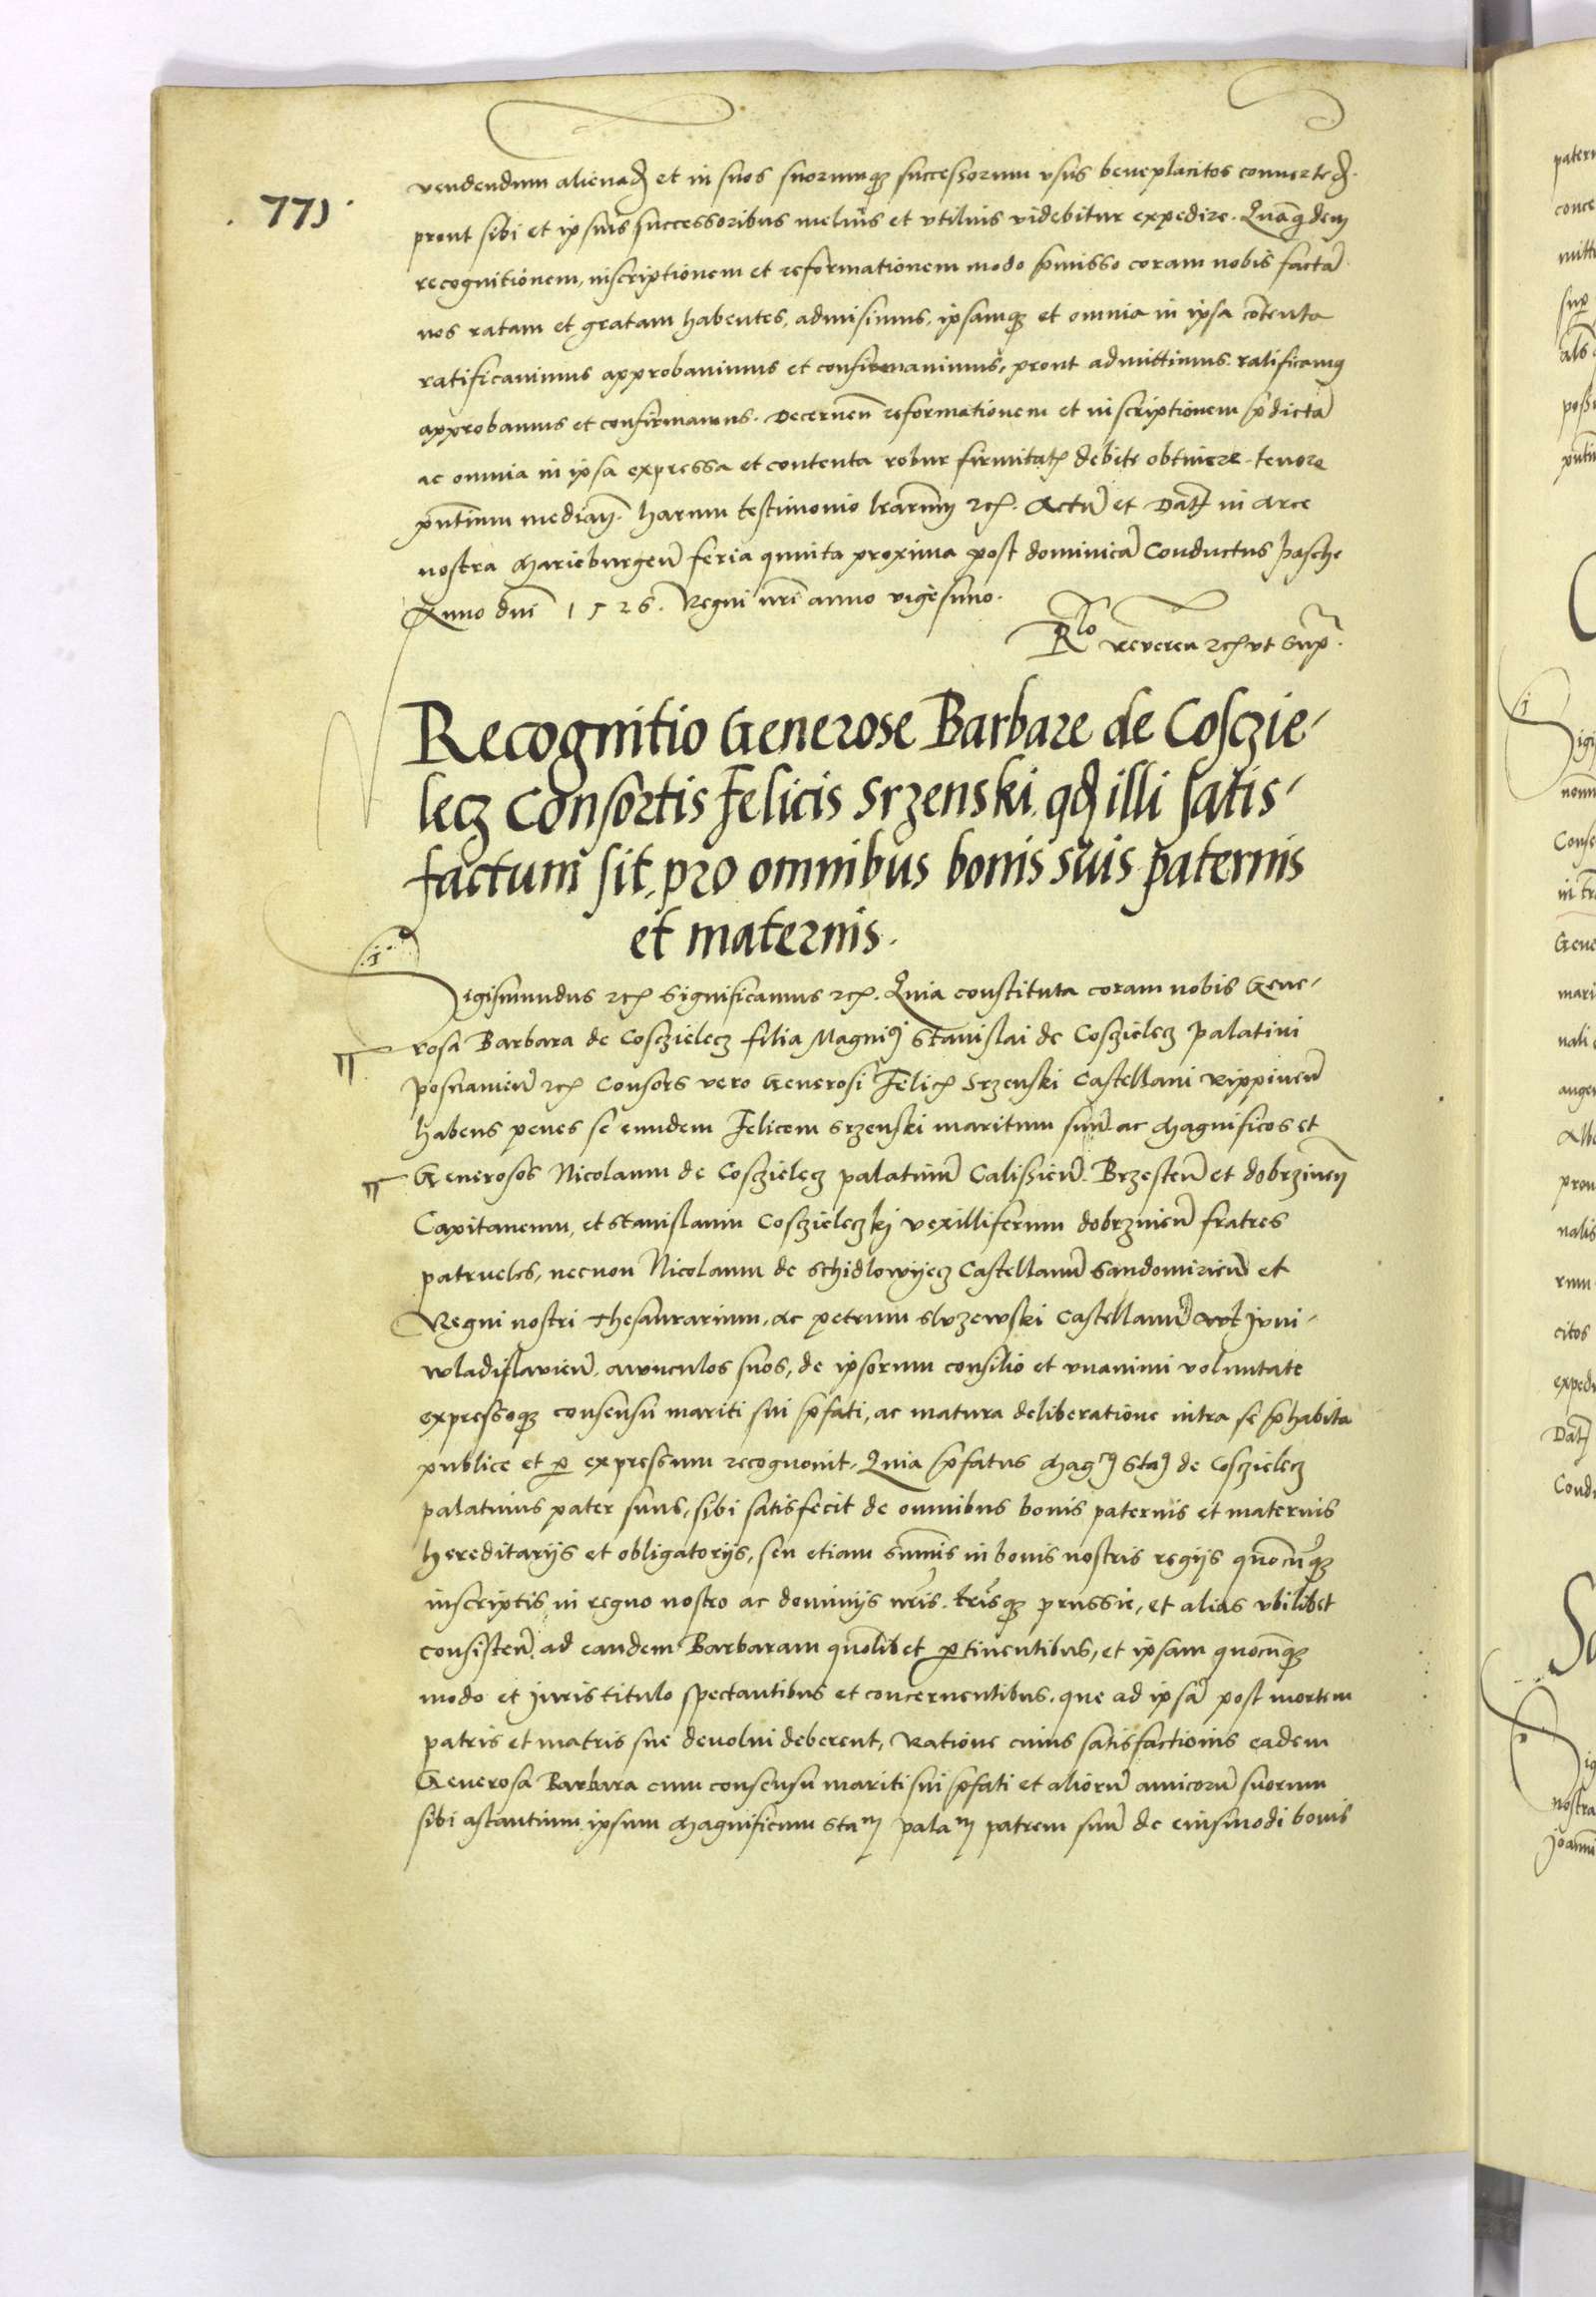 771
vendendum alienad et in suos suorumq successorum vsus beneplacitos conuerted.
prout sibi et ipsius successoribus melius et vtilius videbitur expedire. Quāqdem
recognitionem, inscriptionem et reformationem modo pmisso coram nobis factā
nos ratam et gratam habentes, admisimus, ipsamq et omnia in ipsa cōtenta
ratificauimus approbauimus et confirmauimus, prout admittimus ratificamq
approbamus et confirmamus. Decernen reformationem et inscriptionem pdictā
ac omnia in ipsa expressa et contenta robur firmitatē debite obtinere tenore
pntium median. harum testimonio lrarum rc. Actū et Dat in Arce
nostra Marieburgen feria quinta proxima post dominicā Conductus pasche
Anno dni 1526. Regni nri anno vigesimo.
Rlo Reveren rc vt Sup.
Recognitio Generose Barbare de Cosczie-
lecz Consortis Felicis Srzenski, qd illi satis-
factum sit, pro omnibus bonis suis paternis
et maternis.
Sigismundus rc Significamus rc. Quia constituta coram nobis Gene-
rosa Barbara de Cosczielecz filia Magnici Stanislai de Cosczielecz palatini
posnanien rc Consors vero Generosi Felicis Srzenski Castellani Rippinen
habens penes se eundem Felicem Srzenski maritum suū ac Magnificos et
Generosos Nicolaum de Cosczielecz palatinū Calissien. Brzesten et dobrzinen
Capitaneum, et Stanislaum Cosczieleczkj vexilliferum dobrzinien fratres
patrueles, necnon Nicolaum de Schidlowyecz Castellanū Sandomirien et
Regni nostri Thesaurarium, Ac petrum Slvzewski Castellanū Juni-
wladislavien. awnculos suos, de ipsorum consilio et vnanimi voluntate
expressoq consensu mariti sui pfati, ac matura deliberatione intra se phabita
publice et p expressum recognouit, Quia pfatus Magcus Sta de Cosczielecz
palatinus pater suus, sibi satisfecit de omnibus bonis paternis et maternis
hereditarijs et obligatorijs, seu etiam summis in bonis nostris regijs quocunq
inscriptis, in regno nostro ac dominijs nris. terrisq prussie, et alias vbilibet
consisten, ad eandem Barbaram quolibet ptinentibus, et ipsam quocunq
modo et Juris titulo spectantibus et concernentibus, que ad ipsā post mortem
patris et matris sue deuolui deberent, Ratione cuius satisfactionis eadem
Generosa Barbara cum consensu mariti sui pfati et aliorū amicorū suorum
sibi astantium ipsum Magnificum Stam palam patrem suū de eiusmodi bonis